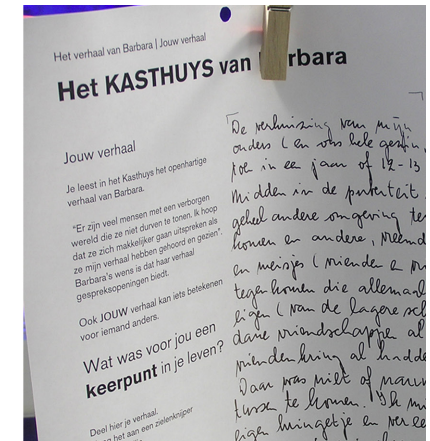 Het verhaal van Barbara | Jouw verhaal
Het KASTHUYS van rbara
Jouw verhaal
Je leest in het Kasthuys het openhartige
verhaal van Barbara.
"Er zijn veel mensen met een verborgen
wereld die ze niet durven te tonen. Ik hoop
dat ze zich makkelijker gaan uitspreken als
ze mijn verhaal hebben gehoord en gezien".
Barbara's wens is dat haar verhaal
gespreksopeningen biedt.
Ook JOUW verhaal kan iets betekenen
voor iemand anders.
Wat was voor jou een
keerpunt in je leven?
Deel hier je verhaal.
het aan een zielenknijper
De verhuizing van mijn
ouders (en ons hele gezin,
toe in een jaar of 12-13
Midden in de puberteit
geheel andere omgeving te
komen en andere, vreemd
en meisjes (vrienden e
tegenkomen die allemaal
eigen (van de lagere sc
dare vriendschappen al
vriendenkring al hadd
Daar was niet of nauw
tussen te komen. Ik m
eigen kringetje en ver ee